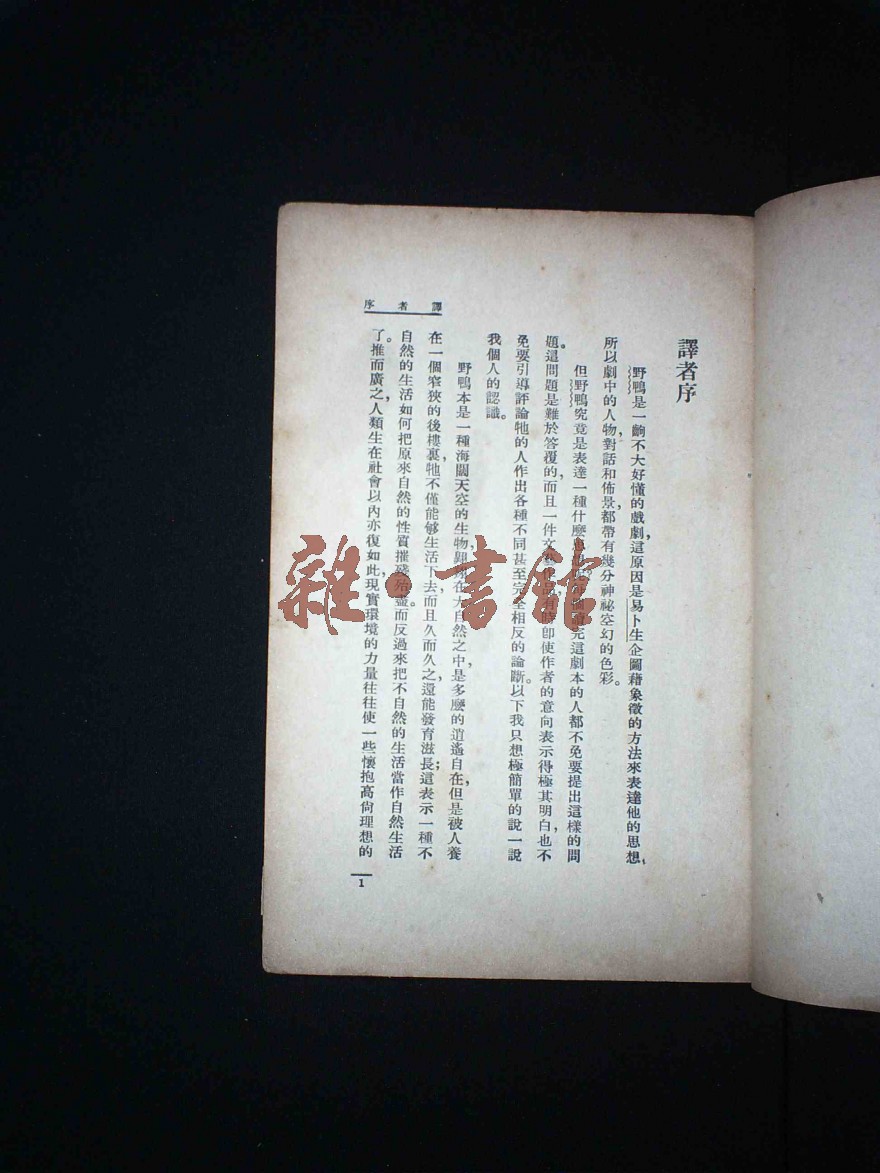 譯者序
譯者序
野鴨是一齣不大好懂的戲劇，這原因是易卜生企圖藉象徵的方法來表達他的思想、
所以劇中的人物，對話和佈景都帶有幾分神祕空幻的色彩。
但野鴨究竟是表達一種什麼 這劇本的人都不免要提出這樣的問
題。這問題是難於答覆的，而且一件文 即使作者的意向表示得極其明白，也不
免要引導評論牠的人作出各種不同甚至完全相反的論斷。以下我只想極簡單的說一說
我個人的認識。
野鴨本是一種海闊天空的生物， 在大自然之中，是多麼的逍遙自在，但是被人養
在一個窄狹的後樓裏，牠不僅能够生活下去，而且久而久之，還能發育滋長；這表示一種不
自然的生活如何把原來自然的性質摧殘殆盡。而反過來把不自然的生活當作自然生活
了。推而廣之，人類生在社會以內亦復如此，現實環境的力量往往使一些懷抱高尙理想的
1
雜·書館